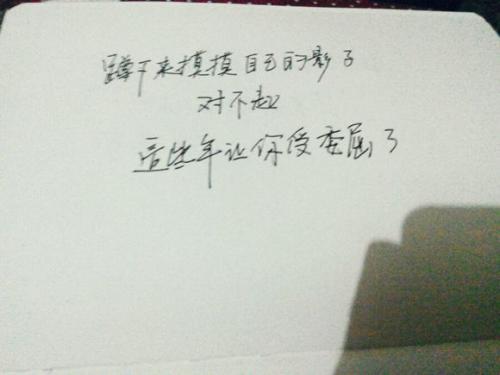 蹲下来摸摸自己的影子
对不起
这些年让你受委屈了